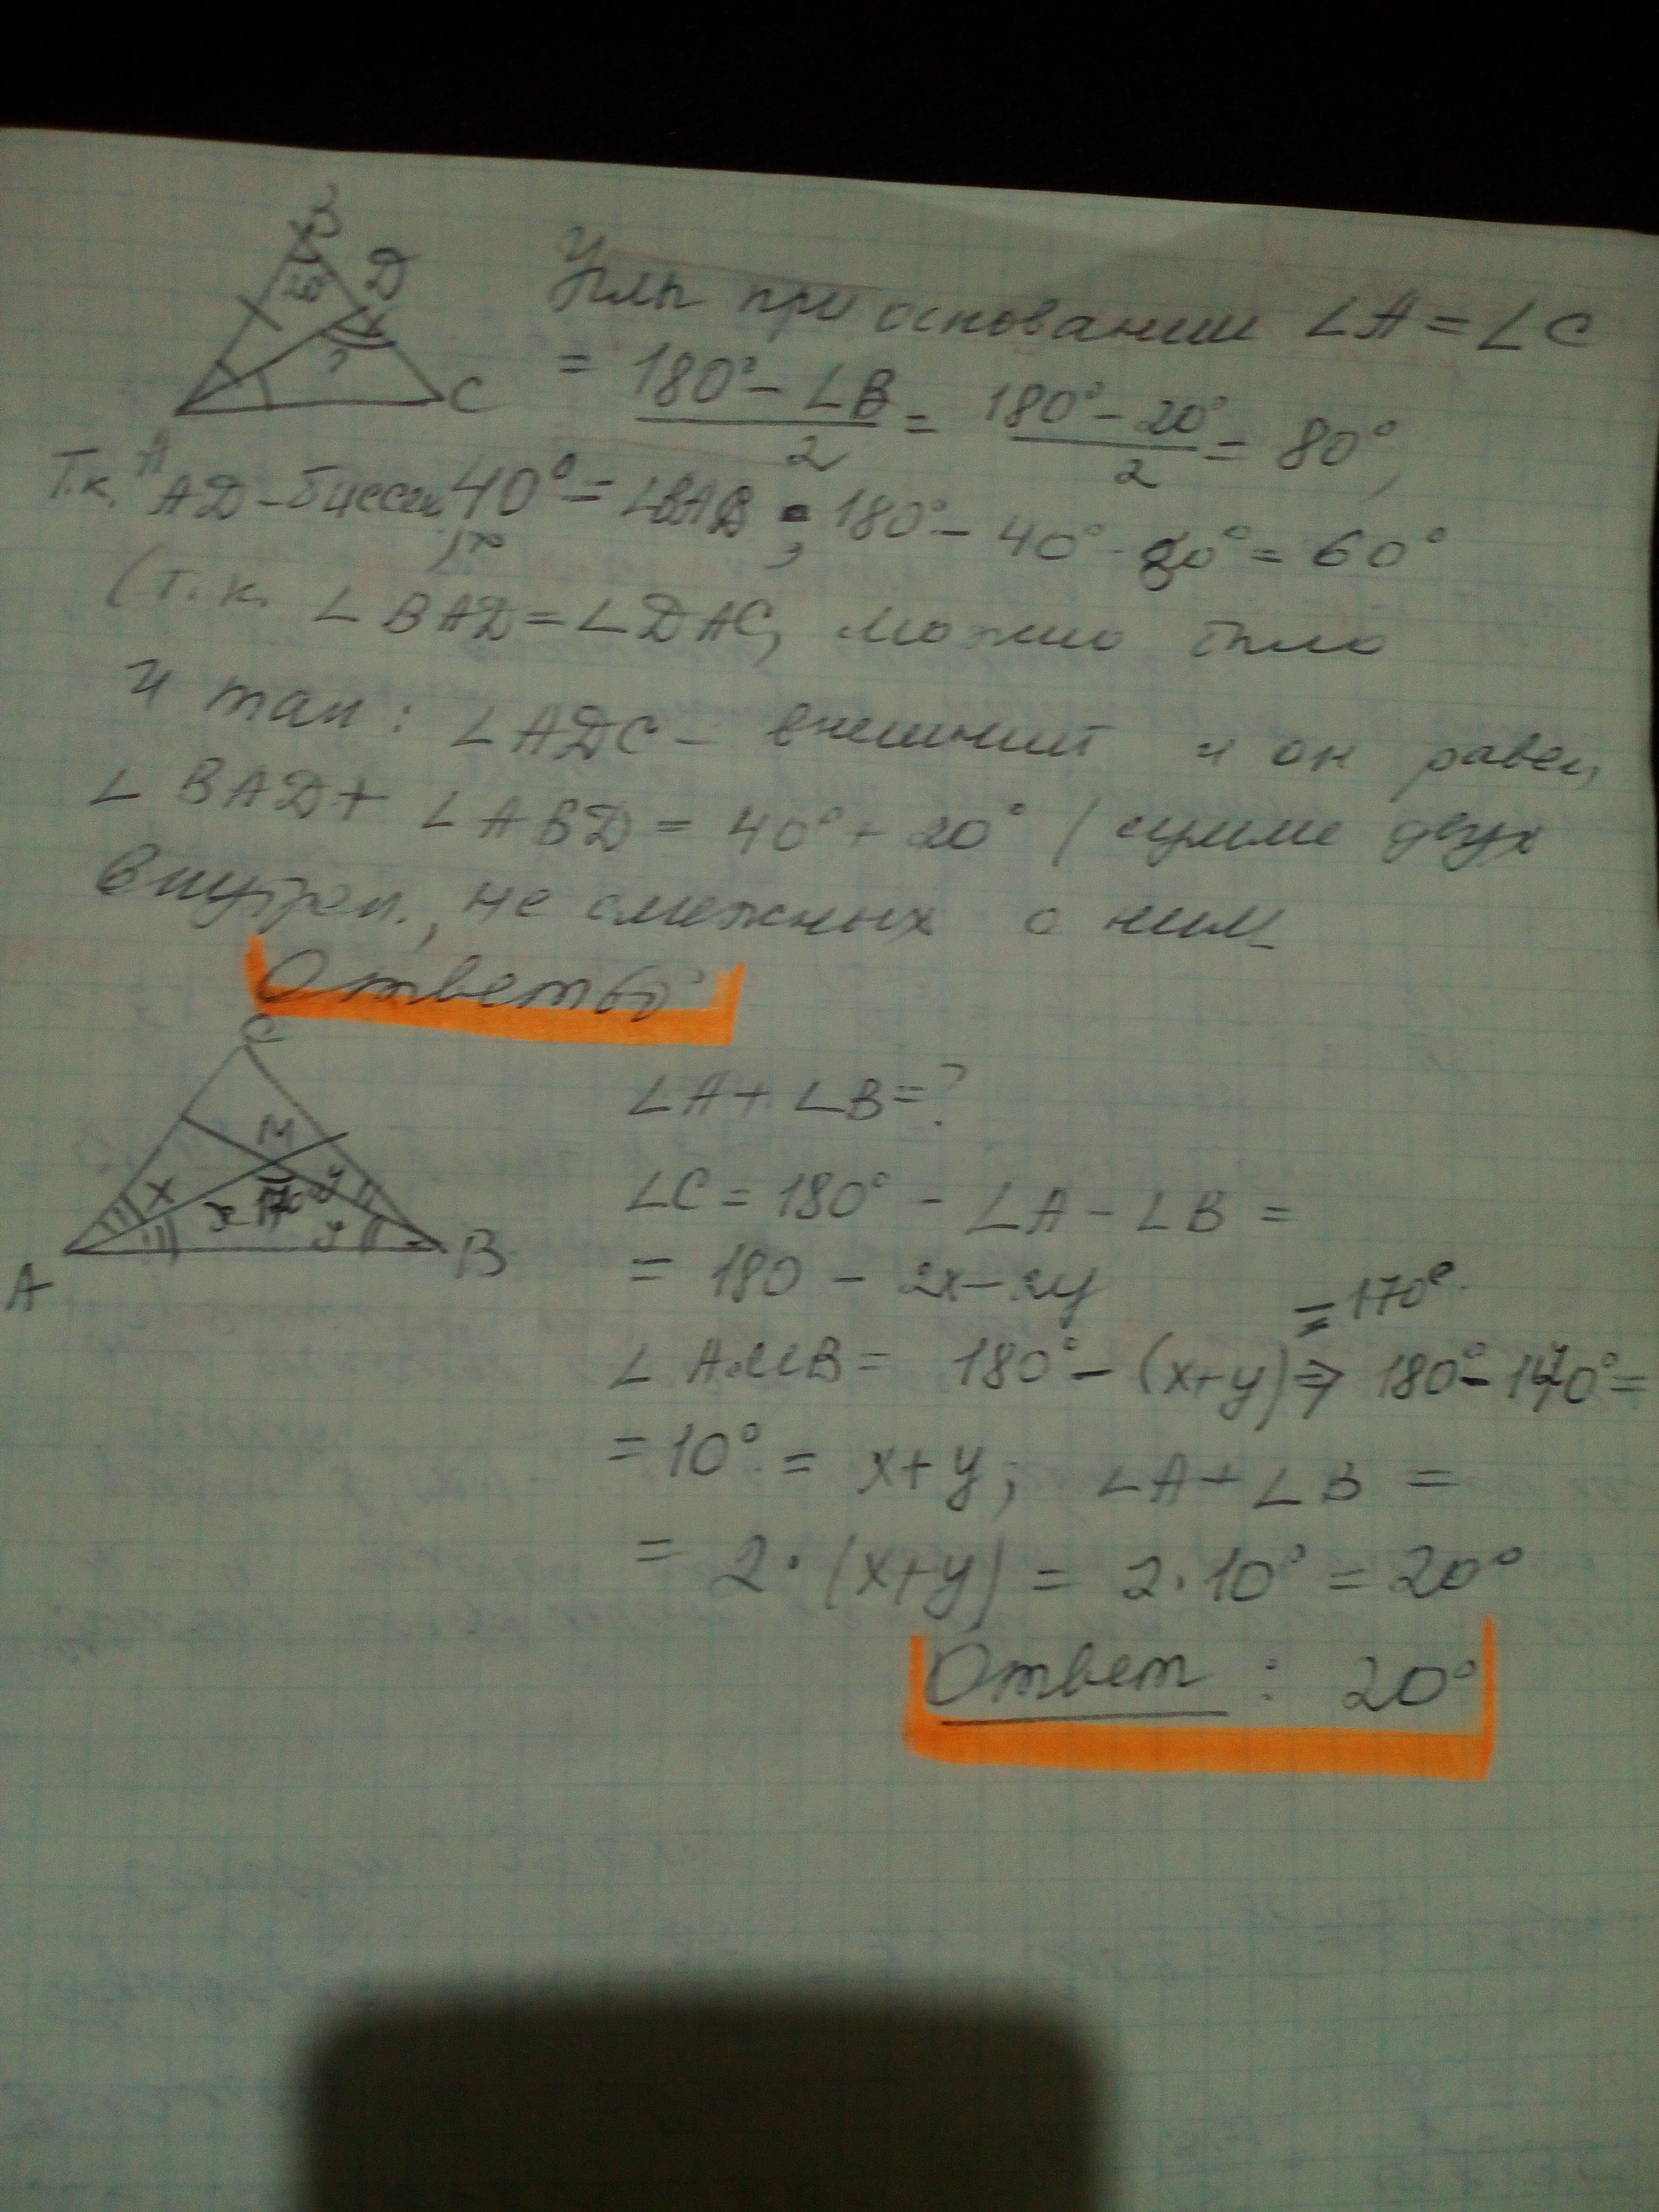 B
D
?
A
C
Углы при основании ∠A = ∠C
= 180° - ∠B / 2 = 180° - 20° / 2 = 80°,
Т.к. AD - биссек 40° = ∠BAD; 180° - 40° - 80° = 60°
(т.к. ∠BAD = ∠DAC, можно было
и так: ∠ADC - внешний и он равен,
∠BAD + ∠ABD = 40° + 20° (сумме двух
внутрен., не смежных с ним
Ответ 60°
C
M
x
x
170°
y
y
A
B
∠A + ∠B = ?
∠C = 180° - ∠A - ∠B =
= 180 - 2x - 2y
= 170°.
∠AMB = 180° - (x+y) ⇒ 180° - 170° =
= 10° = x + y; ∠A + ∠B =
= 2 · (x+y) = 2 · 10° = 20°
Ответ : 20°